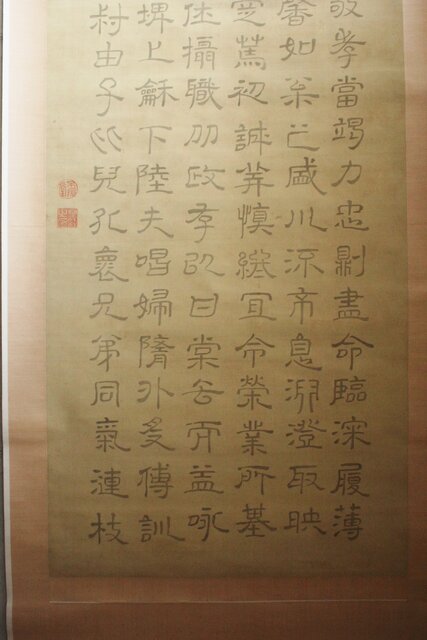 敬孝當竭力忠則盡命臨深履薄
馨如松之盛川流不息淵澄取映
定篤初誠美慎終宜令榮業所基
仕攝職从政存以甘棠去而益咏
卑上龢下睦夫唱婦隨外受傅訓
叔猶子比兒孔褱兄弟同氣連枝